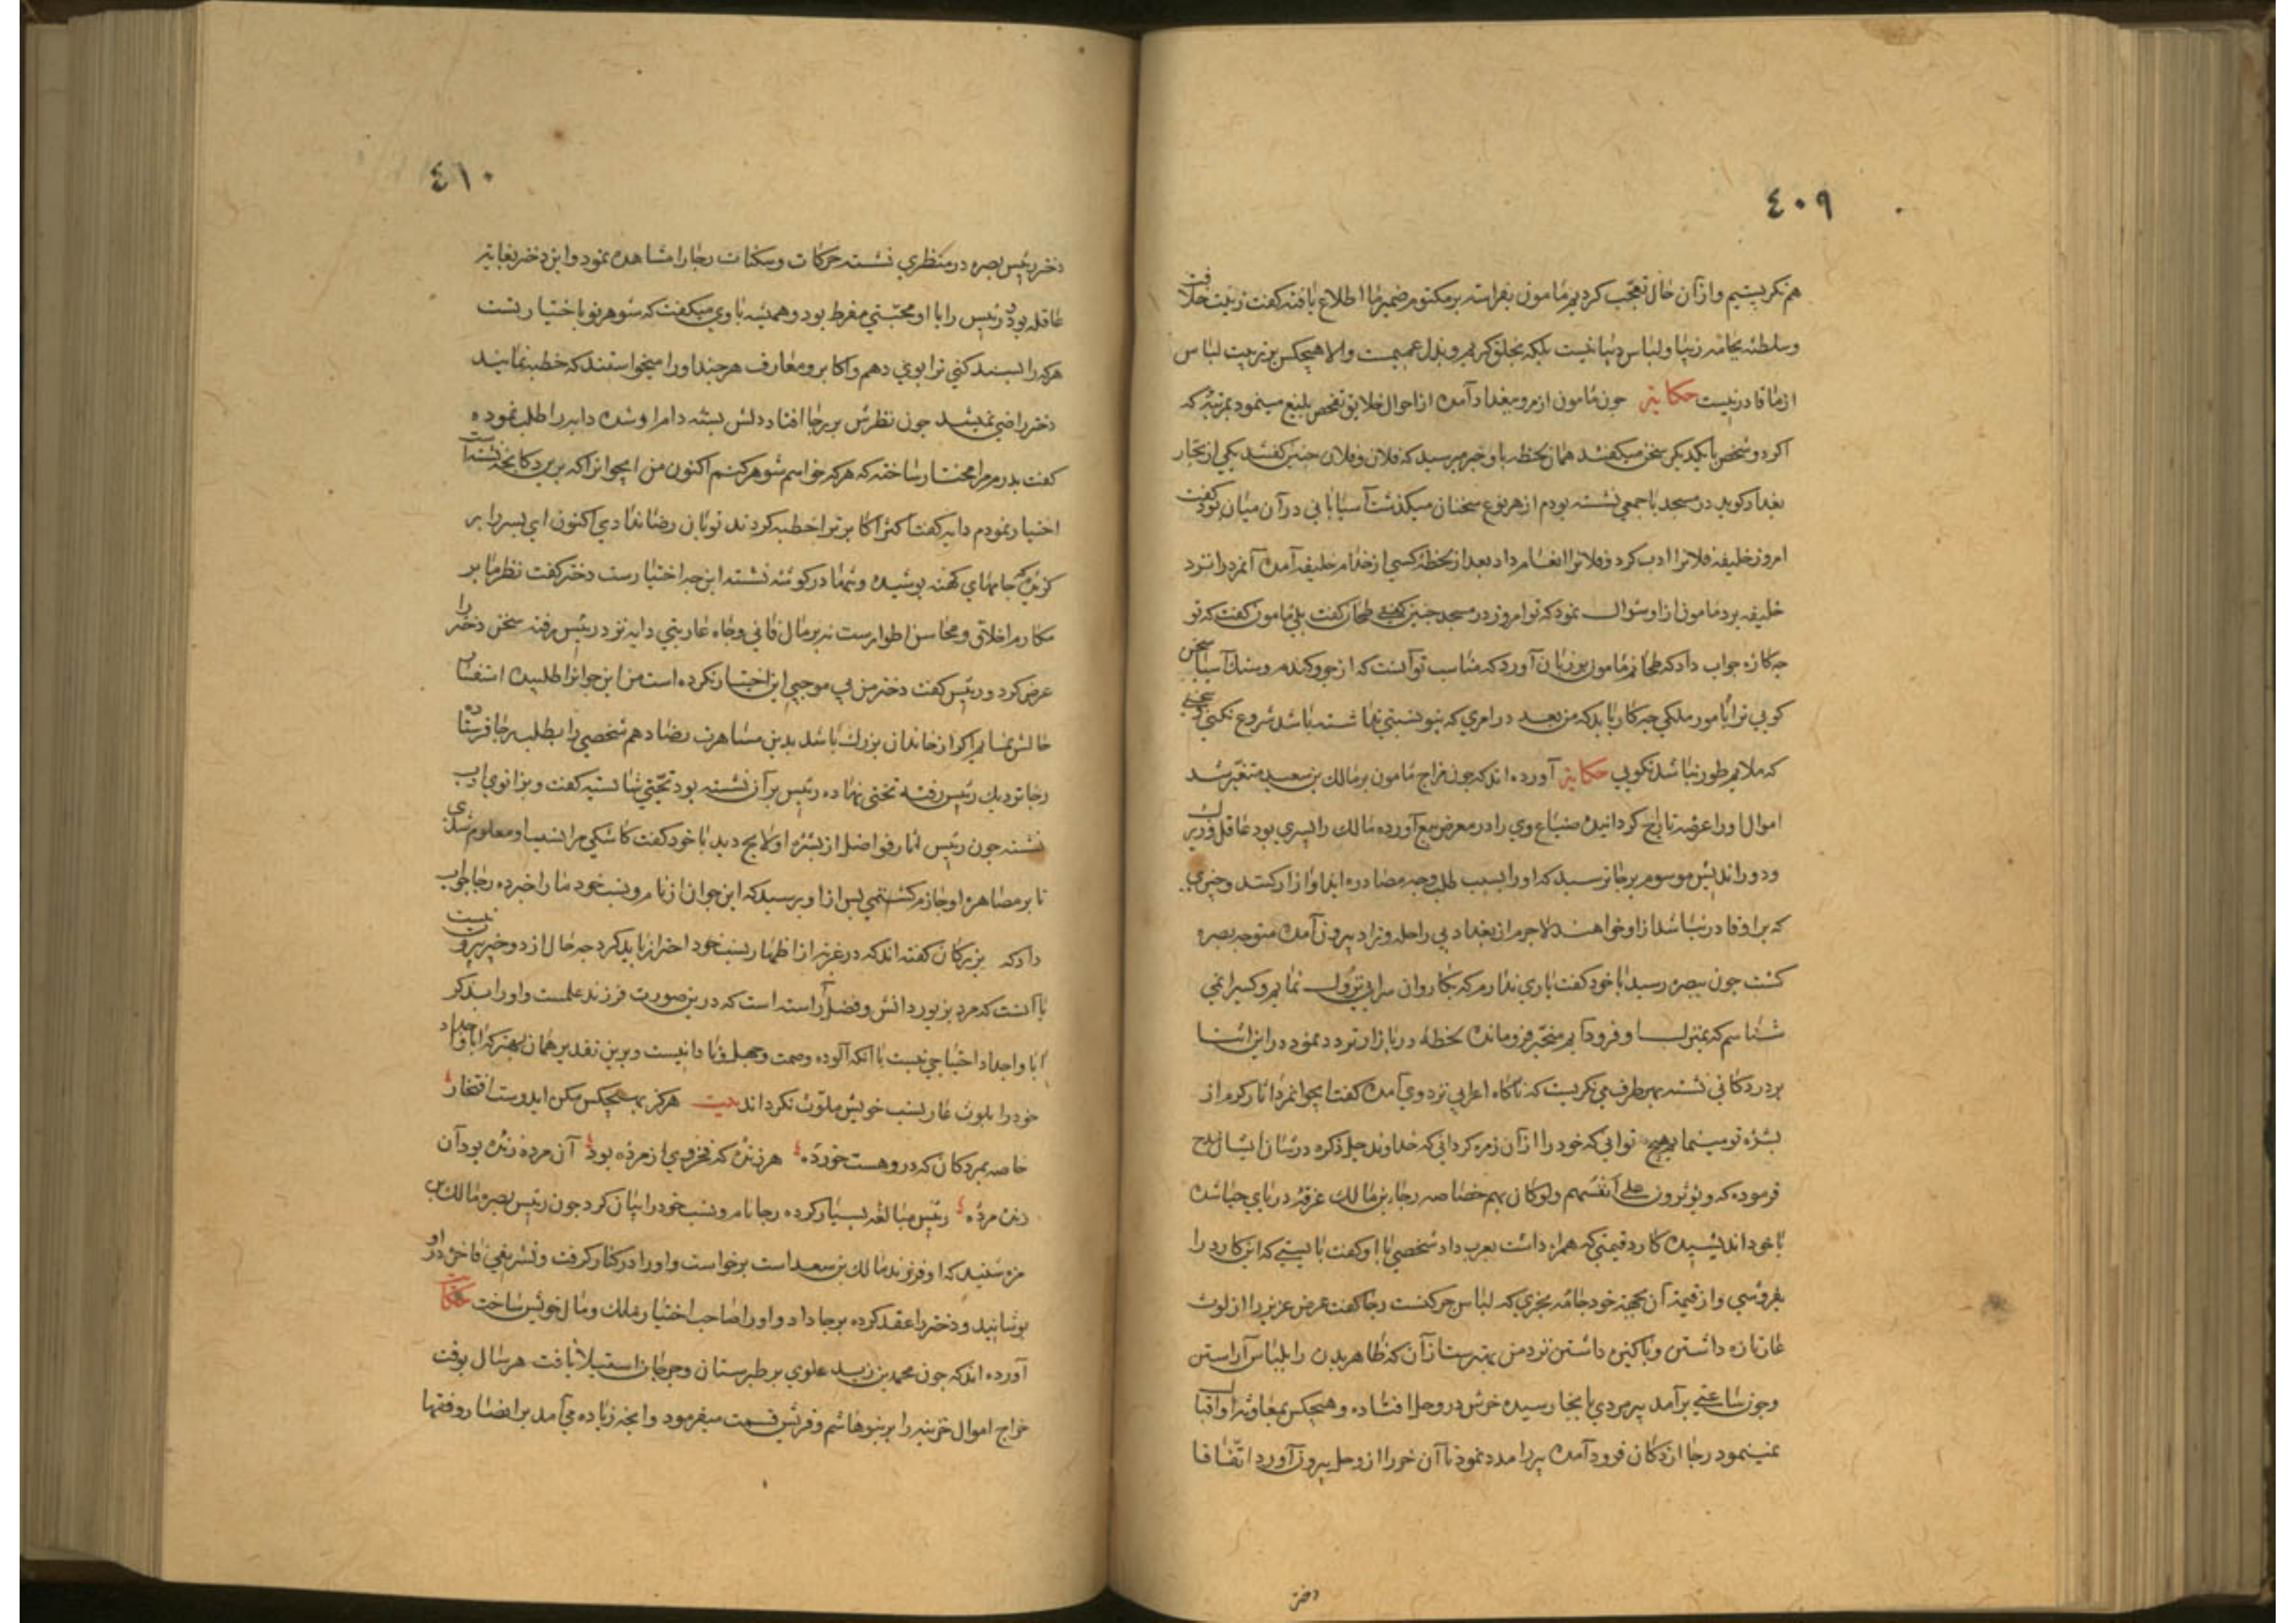 ٤٠٩
هم نکریستیم و از آن حال تعجّب کردیم مامون بفراست بر مکتوم ضمیر ما اطلاع یافته کفت زینت خلافت
و سلطنه بجامه زیبا و لباس دیبا نیست بلکه بخلق کریم و بذل عمیمست و الا هیچکس بر تربیت لباس
از ما قادر نیست حکایة جون مامون از مرو ببغداد آمده از احوال خلایق تفحص بلیغ مینمود بمرتبه که
اکر دو شخص با یکدیکر سخن میکفتند همان لحظه باو خبر میرسید که فلان و فلان جنین کفتند یکی از تجار
بغداد کوید در مسجد با جمعی نشسته بودم از هر نوع سخنان میکذشت آسیابانی در آن میان بود کفت
امروز خلیفه فلانرا ادب کرد و فلانرا انعام داد بعد از لحظهٔ کسی از خدام خلیفه آمده آنمرد را نزد
خلیفه برد مامون از او سؤال نمود که تو امروز در مسجد جنین کفتی طحان کفت بلی مامون کفت که تو
جه کارهٔ جواب داد که طحانم مامون بر زبان آورد که مناسب تو آنست که از جو و کندم و سنک آسیا سخن
کویی ترا بامور ملکی جه کار باید که من بعد در امری که بتو نسبتی نداشته باشد شروع نکنی و سخنی
که ملایم طور نباشد نکویی حکایة آورده اند که جون مزاج مامون بر مالک بن سعید متغیّر شد
اموال او را عرضه تاراج کردانیده ضیاع وی را در معرض بیع آورده مالک را پسری بود عاقل و زیرک
و دور اندیش موسوم برجا ترسید که او را بسبب طلب وجه مصادره ایذا و آزار کنند و جیزی
که بر او قادر نباشد از او خواهند لاجرم از بغداد بی راحله و زاد بیرون آمده متوجه بصره
کشت جون ببصره رسید با خود کفت یاری ندارم که بکاروان سرایی نزول نمایم و کسیرا نمی
شناسم که بمنزل او فرود آیم متحیّر فرومانده لحظهٔ در بازار تردد نمود در این اثنا
بر در دکانی نشسته بهر طرف می نکریست که ناکاه اعرابی نزد وی آمده کفت ایجوانمرد آثار کرم از
بشرهٔ تو مینماید هیچ توانی که خود را از آن زمره کردانی که خداوند جل ذکره در شان ایشان مدح
فرموده که و یؤثرون علی انفسهم و لو کان بهم خصاصه رجاء بن مالک غرقهٔ دریای حیا شده
با خود اندیشیده کارد قیمتی که همراه داشت بعرب داد شخصی با او کفت بایستی که این کارد را
بفروشی و از قیمة آن بجهة خود جامه بخری که لباس جرکنست رجا کفت عرض عزیز را از لوث
عار تازه داشتن و پاکیزه داشتن نزد من بهتر ست از آن که ظاهر بدن را بلباس آراستن
و جون ساعتی برآمد پیر مردی بانجا رسیده خرش در وحل افتاده و هیجکس بمعاونت او اقبال
نمینمود رجا از دکان فرود آمده پیر را مدد نمود تا آن خر را از وحل بیرون آورد اتّفاقا
دختر
٤١٠
دختر رئیس بصره در منظری نشسته حرکات و سکنات رجا را مشاهده نمود و این دختر بغایة
عاقله بود و رئیس را با او محبّتی مفرط بود و همیشه با وی میکفت که شوهر تو باختیار تست
هر که را پسند کنی ترا بوی دهم و اکابر و معارف هر جند او را میخواستند که خطبه نمایند
دختر راضی نمیشد جون نظرش بر رجا افتاد دلش بستهٔ دام او شده دایه را طلب نموده
کفت پدرم مرا مختار ساخته که هر که خواهم شوهر کنم اکنون من این جوانرا که بر در دکانجه نشسته است
اختیار نمودم دایه کفت اکثر اکابر ترا خطبه کردند تو بآن رضا ندادی اکنون این پسر را بر
کزیدی که جامهای کهنه پوشیده و تنها در کوشه نشسته این جه اختیارست دختر کفت نظر ما بر
مکارم اخلاق و محاسن اطوارست نه بر مال فانی و جاه عاریتی دایه نزد رئیس رفته سخن دختر را
عرض کرد و رئیس کفت دختر من بی موجبی این اختیار نکرده است من این جوانرا طلبیده استفسار
حالش نمایم اکر از خاندان بزرک باشد بدین مصاهرت رضا دهم شخصی را بطلب رجا فرستاده
رجا نزدیک رئیس رفته تختی نهاده رئیس بر آن نشسته بود تحیّتی شایسته کفت و بزانوی ادب
نشسته جون رئیس آثار فواضل از بشرهٔ او لایح دید با خود کفت کاشکی مرا نسب او معلوم شدی
تا بر مصاهرهٔ او جازم کشتمی پس از او پرسید که این جوان از نام و نسب خود ما را خبر ده رجا جواب
داد که بزرکان کفته اند که در غربة از اظهار نسب خود احتراز باید کرد جه حال از دو جیز بیرون نیست
یا آنست که مرد بزیور دانش و فضل آراسته است که درین صورت فرزند علمست و او را بذکر
آبا و اجداد احتیاجی نیست یا آنکه آلوده وصمت و جهل و نادانیست و برین تقدیر همان بهتر که آبا و اجداد
خود را بلوث عار نسب خویش ملوّث نکرداند بیت هرکز بهیچکس مکن ایدوست افتخار
خاصه بمردکان که درو هست خورده هر زنده که فخر وی از مرده بود آن مرده زنده بود آن
زنده مرده رئیس مبالغه بسیار کرده رجا نام و نسب خود را بیان کرد جون رئیس بصره مالک بن
مره شنید که او فرزند مالک بن سعید است برخواست و او را در کنار کرفت و تشریفی فاخر در او
پوشانید و دختر را عقد کرده برجا داد و او را صاحب اختیار ملک و مال خویش ساخت حکایت
آورده اند که جون محمد بن زید علوی بر طبرستان و جرجان استیلا یافت هر سال بوقت
خراج اموال خزینه را بر بنو هاشم و قریش قسمت میفرمود و آنجه زیاده می آمد بر انصار و فقها